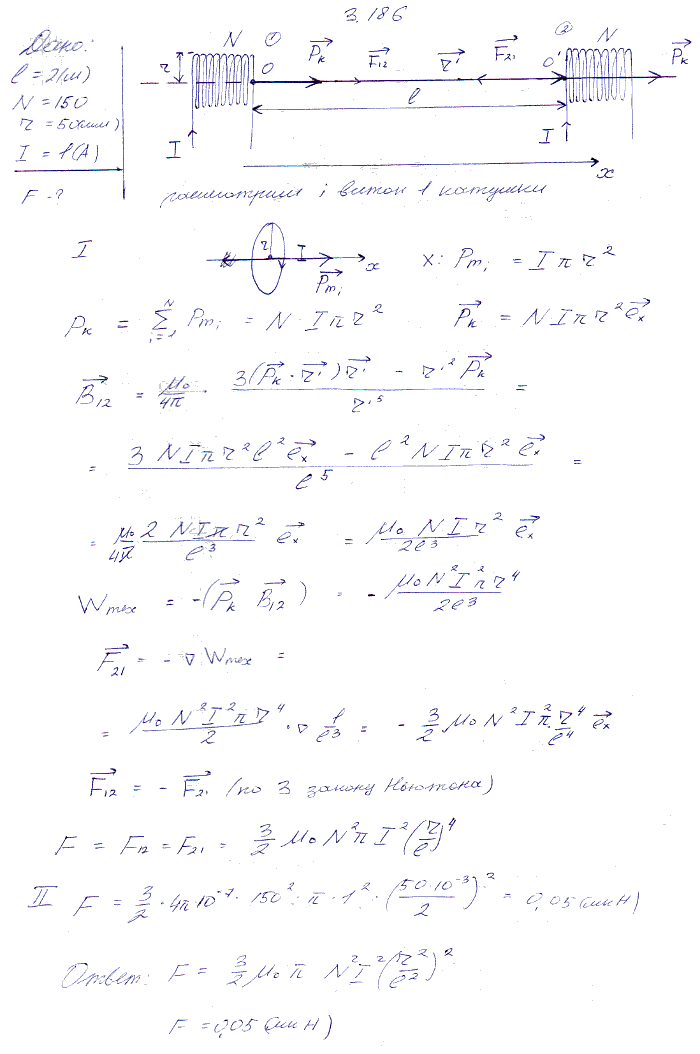 3.186
Дано:
l = 2(м)
N = 150
r = 50(мм)
I = 1(А)
F - ?
N ① P⃗к F⃗₁₂ r⃗' F⃗₂₁ ② N P⃗к
r O O'
l
I I
x
рассмотрим i виток 1 катушки
I r I x P⃗mᵢ x: Pmᵢ = Iπr²
Pк = Σᵢ₌₁ᴺ Pmᵢ = N · Iπr² P⃗к = NIπr² e⃗ₓ
B⃗₁₂ = μ₀/4π · (3(P⃗к · r⃗')r⃗' - r'² P⃗к)/r'⁵ =
= (3NIπr²l² e⃗ₓ - l²NIπr² e⃗ₓ)/l⁵ =
= μ₀/4π · 2NIπr²/l³ e⃗ₓ = μ₀NIr²/2l³ e⃗ₓ
Wмех = -(P⃗к B⃗₁₂) = - μ₀N²I²πr⁴/2l³
F⃗₂₁ = - ∇ Wмех =
= μ₀N²I²πr⁴/2 · ∇ 1/l³ = - 3/2 μ₀N²I²π · r⁴/l⁴ e⃗ₓ
F⃗₁₂ = - F⃗₂₁ (по 3 закону Ньютона)
F = F₁₂ = F₂₁ = 3/2 μ₀N²πI²(r/l)⁴
II F = 3/2 · 4π·10⁻⁷ · 150² · π · 1² · (50·10⁻³/2)² = 0,05(мкН)
Ответ: F = 3/2 μ₀π N²I²(r²/l²)²
F = 0,05(мкН)